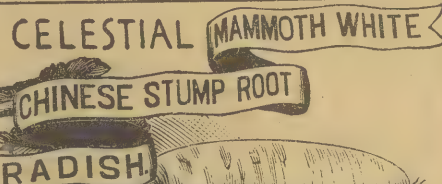 CELESTIAL MAMMOTH WHITE
CHINESE STUMP ROOT
RADISH.